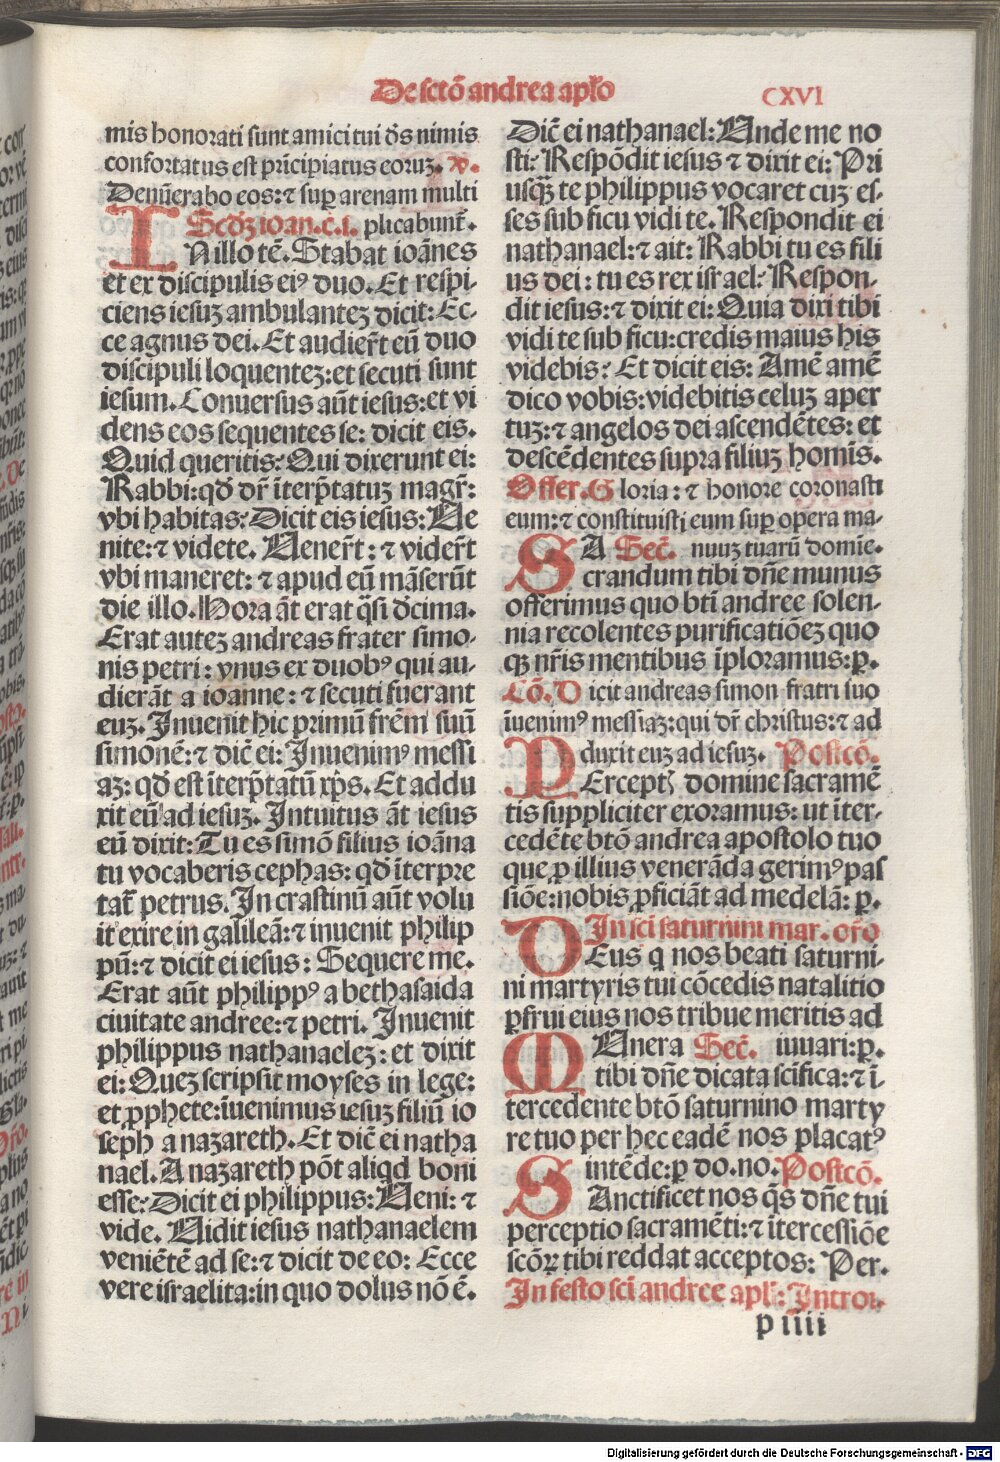 De sctō andrea aplo
CXVI
mis honorati sunt amici tui ds nimis
confortatus est prīcipiatus eoruꝫ. v.
Denūerabo eos: ⁊ suꝑ arenam multi
Scdꝫ ioan. c. i. plicabunt̄.
IN illo tē. Stabat ioānes
et ex discipulis eiꝰ duo. Et respi-
ciens iesuꝫ ambulanteꝫ dicit: Ec-
ce agnus dei. Et audier̄t eū duo
discipuli loquenteꝫ: et secuti sunt
iesum. Conuersus aūt iesus: et vi
dens eos sequentes se: dicit eis.
Quid queritis: Qui dixerunt ei:
Rabbi: qđ dr̄ īterp̄tatuꝫ magr̄:
vbi habitas: Dicit eis iesus: Ve
nite: ⁊ videte. Vener̄t: ⁊ vider̄t
vbi maneret: ⁊ apud eū māserūt
die illo. Hora āt erat q̄si dcima.
Erat auteꝫ andreas frater simo-
nis petri: vnus ex duobꝰ qui au-
dierāt a ioanne: ⁊ secuti fuerant
euꝫ. Inuenit hic primū frēm suū
simonē: ⁊ dic̄ ei: Inuenimꝰ messi
aꝫ: qđ est īterp̄tatū xp̄s. Et addu
xit eū ad iesuꝫ. Intuitus āt iesus
eū dixit: Tu es simō filius ioāna
tu vocaberis cephas: qđ īterpre
tat̄ petrus. In crastinū aūt volu
it exire in galileā: ⁊ inuenit philip
pū: ⁊ dicit ei iesus: Sequere me.
Erat aūt philippꝰ a bethasaida
ciuitate andree: ⁊ petri. Inuenit
philippus nathanaeleꝫ: et dixit
ei: Queꝫ scripsit moyses in lege:
et ꝓphete: īuenimus iesuꝫ filiū io
seph a nazareth. Et dic̄ ei natha
nael. A nazareth pōt aliqd boni
esse: Dicit ei philippus: Veni: ⁊
vide. Vidit iesus nathanaelem
veniētē ad se: ⁊ dicit de eo: Ecce
vere israelita: in quo dolus nō ē.
Dic̄ ei nathanael: Unde me no
sti: Respōdit iesus ⁊ dixit ei: Pri
usq̄ꝫ te philippus vocaret cuꝫ es-
ses sub ficu vidi te. Respondit ei
nathanael: ⁊ ait: Rabbi tu es fili
us dei: tu es rex israel: Respon-
dit iesus: ⁊ dixit ei: Quia dixi tibi
vidi te sub ficu: credis maius his
videbis: Et dicit eis: Amē amē
dico vobis: videbitis celuꝫ aper
tuꝫ: ⁊ angelos dei ascendētes: et
descēdentes supra filiuꝫ homīs.
Offer. Gloria: ⁊ honore coronasti
eum: ⁊ constituisti eum suꝑ opera ma-
SA Sec̄. nuuꝫ tuarū domīe.
crandum tibi dn̄e munus
offerimus quo bti andree solen-
nia recolentes purificatiōeꝫ quo
qꝫ nr̄is mentibus īploramus: ꝑ.
Cō. Dicit andreas simon fratri suo
īuenimꝰ messiaꝫ: qui dr̄ christus: ⁊ ad
duxit euꝫ ad iesuꝫ. Postcō.
PErceptꝭ domine sacramē
tis suppliciter exoramus: ut īter-
cedēte btō andrea apostolo tuo
que ꝓ illius venerāda gerimꝰ pas
siōe: nobis ꝓficiāt ad medelā: ꝑ.
In sci saturnini mar. oro
DEus q nos beati saturni-
ni martyris tui cōcedis natalitio
ꝑfrui eius nos tribue meritis ad
MUnera Sec̄. iuuari: ꝑ.
tibi dn̄e dicata scifica: ⁊ ī
tercedente btō saturnino marty
re tuo per hec eadē nos placatꝰ
intēde: ꝑ do. no. Postcō.
SAnctificet nos q̄s dn̄e tui
perceptio sacramēti: ⁊ ītercessiōe
scōꝝ tibi reddat acceptos: Per.
In festo sci andree apl̄i: Introi.
p iiii
Digitalisierung gefördert durch die Deutsche Forschungsgemeinschaft - DFG